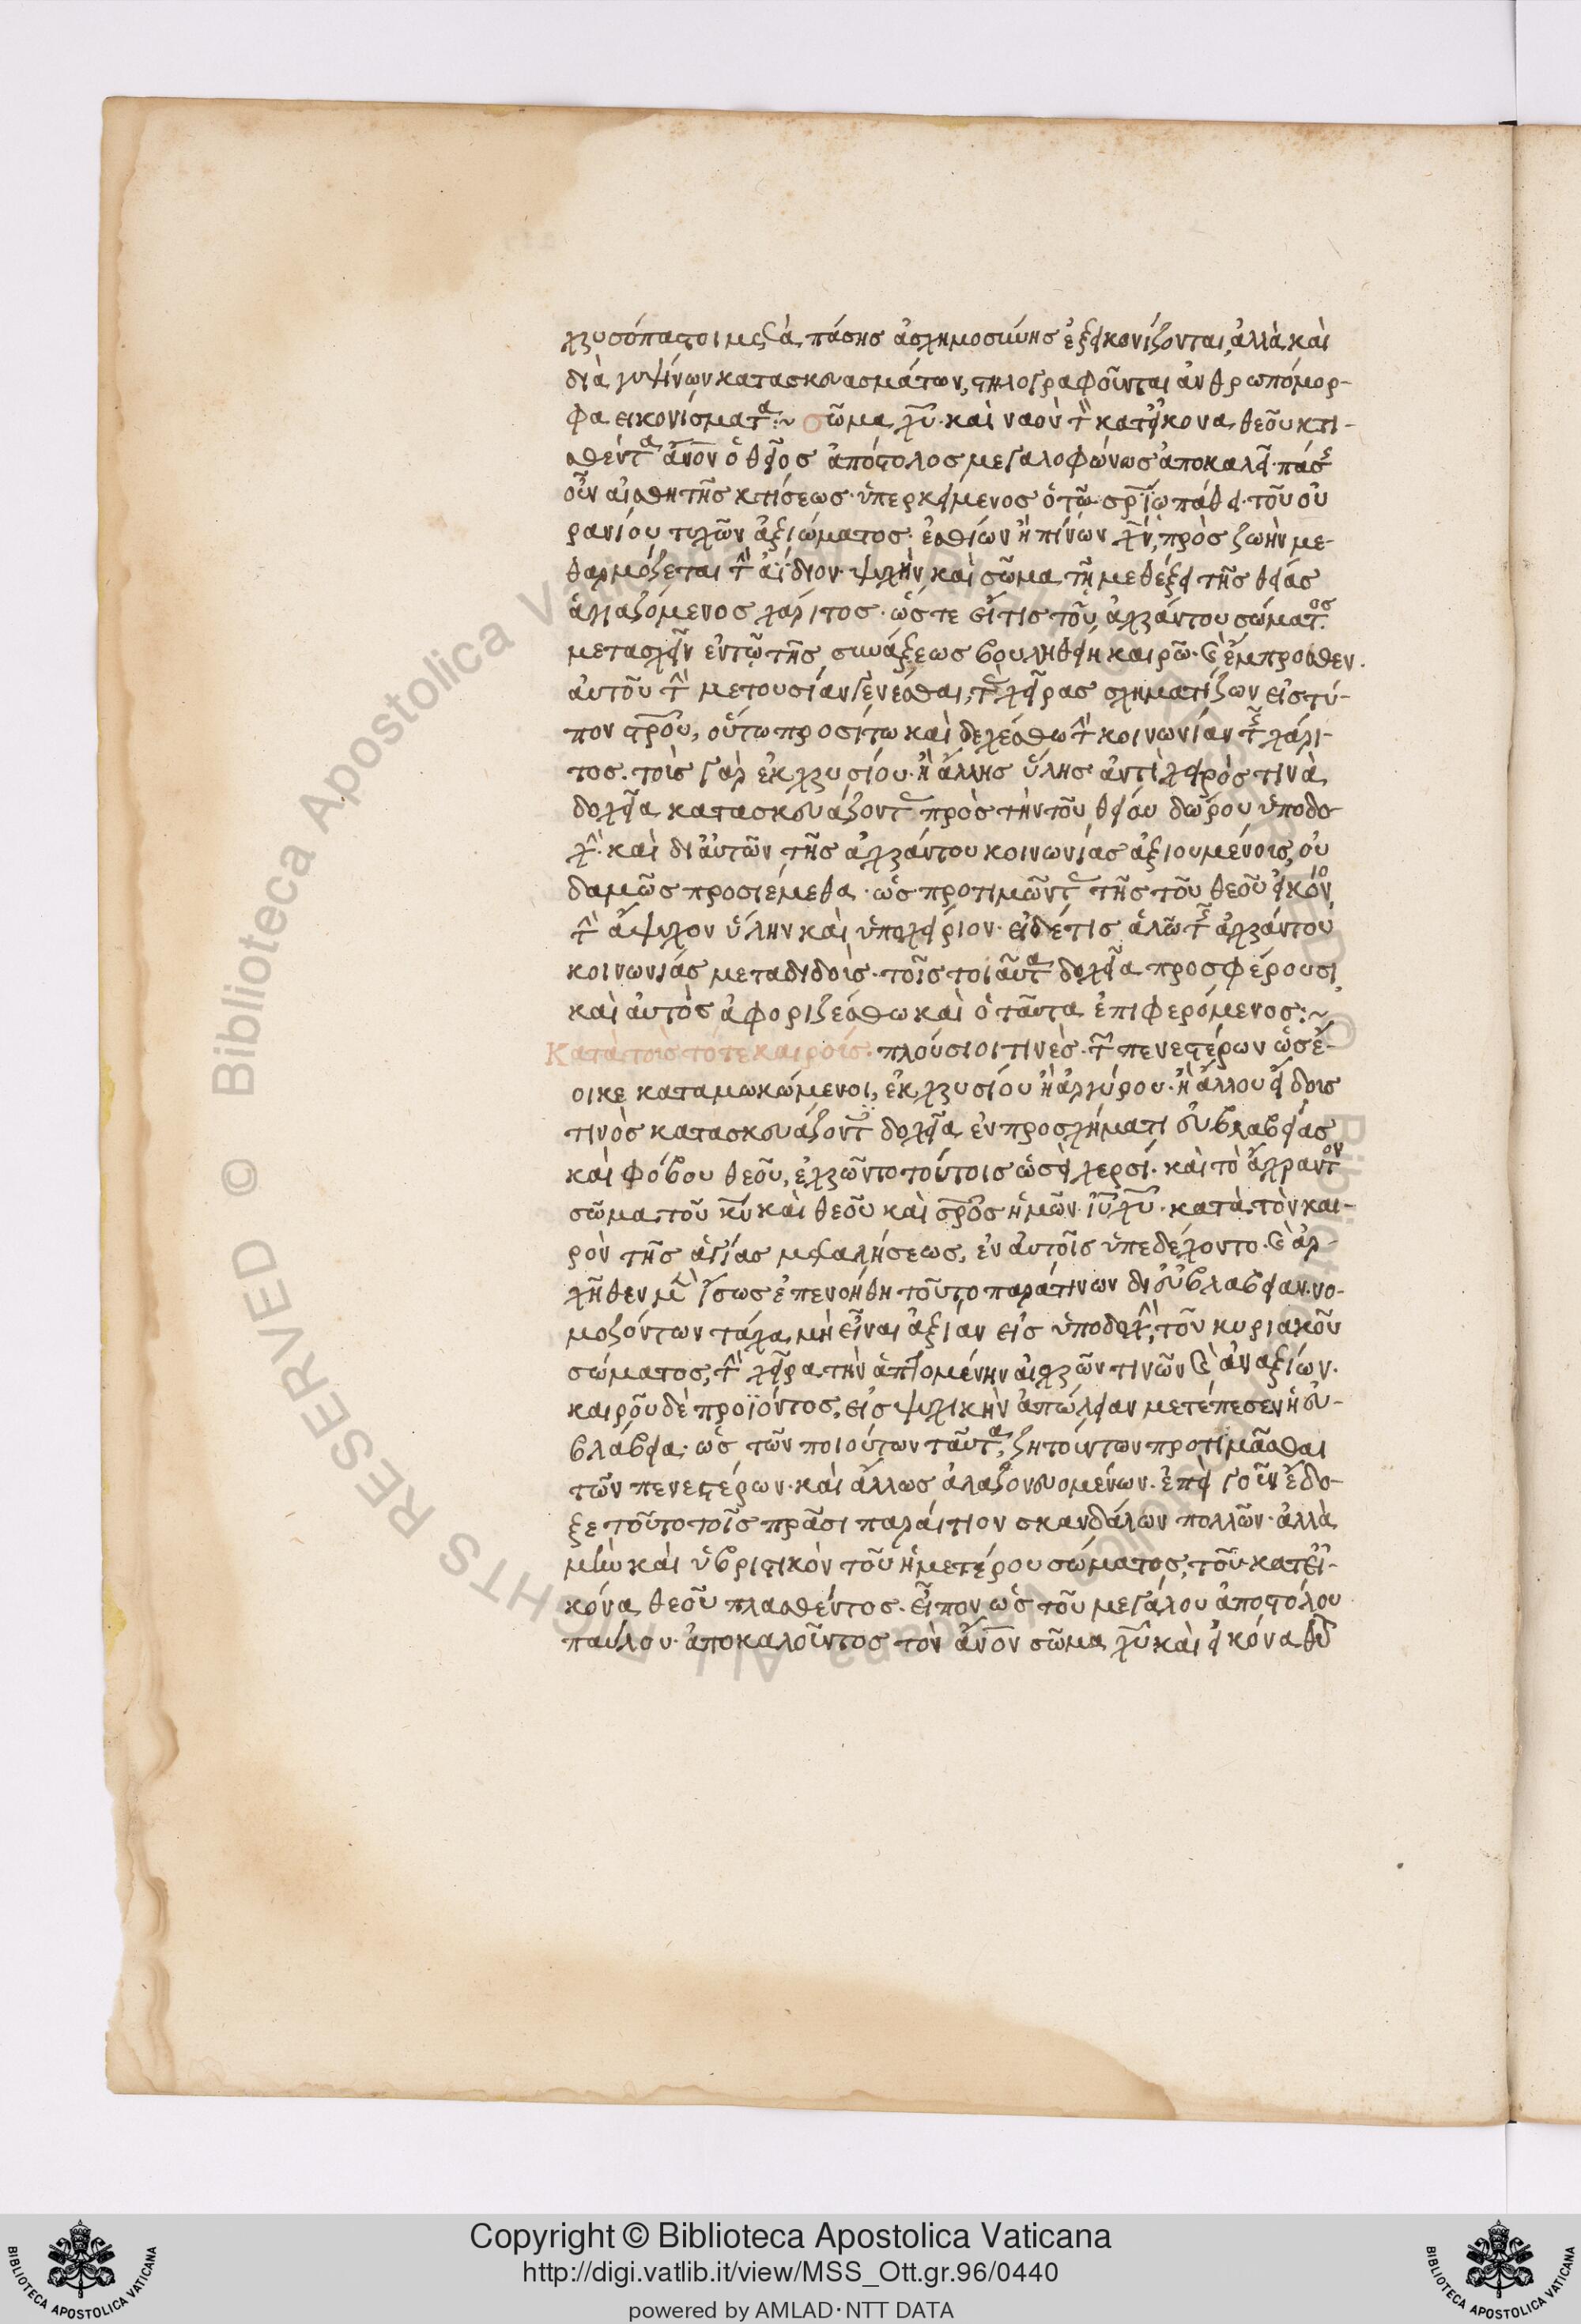 χρυσόπαστοι μετὰ πάσης ἀσχημοσύνης ἐξεικονίζονται, ἀλλὰ καὶ
διὰ γυψίνων κατασκευασμάτων, στηλογραφοῦνται ἀνθρωπόμορ-
φα εικονίσματα :~ σῶμα χυ· καὶ ναὸν τὸν κατεικονα θεοῦ κτι-
σθέντα ἄνον ὁ θεῖος ἀπόστολος μεγαλοφώνως ἀποκαλεῖ· πάσης
οὖν αἰσθητῆς κτίσεως ὑπερκείμενος ὁ τῷ σρίῳ πάθει· τοῦ οὐ
ρανίου τυχῶν ἀξιώματος· ἐσθίων ἢ πίνων χν, πρὸς ζωὴν με-
θαρμόζεται τὴν ἀΐδιον· ψυχὴν καὶ σῶμα τῇ μεθέξει τῆς θείας
ἁγιαζόμενος χάριτος· ὥστε εἴτις τοῦ ἀχράντου σώματος
μετασχεῖν ἐντῷ τῆς συνάξεως βουληθείη καιρῷ· καὶ ἔμπροσθεν
ἀυτοῦ τὴν μετουσίαν γενέσθαι, τὰς χεῖρας σχηματίζων εἰς τύ-
πον στρου, οὕτω προσίτω καὶ δεχέσθω τὴν κοινωνίαν τῆς χάρι-
τος. τοὺς γὰρ ἐκ χρυσίου· ἢ ἄλλης ὕλης ἀντὶ χειρός τινὰ
δοχεῖα κατασκευάζοντας πρὸς τὴν τοῦ θείου δώρου ὑποδο
χὴν· καὶ δι ἀυτῶν τῆς ἀχράντου κοινωνίας ἀξιουμένους, οὐ
δαμῶς προσιέμεθα· ὡς προτιμῶντας τῆς τοῦ θεοῦ εἰκόνος
τὴν ἄψυχον ὕλην καὶ ὑποχείριον· εἰ δέ τις ἁλῷ τῆς ἀχράντου
κοινωνίας μεταδιδοὺς· τοῖς τοιαῦτα δοχεῖα προσφέρουσι
καὶ ἀυτὸς ἀφοριζέσθω καὶ ὁ ταῦτα ἐπιφερόμενος :~
Κατὰ τοὺς τότε καιροὺς· πλούσιοι τινὲς· τῶν πενεστέρων ὡς ἔ-
οικε καταμωκώμενοι, ἐκ χρυσίου ἢ ἀργύρου· ἢ ἄλλου εἴδους
τινὸς κατασκευάζοντες δοχεῖα ἐν προσχήματι εὐβλαβείας
καὶ φόβου θεοῦ, ἐχρῶντο τούτοις ὡσεὶ χερσί· καὶ τὸ ἄχραντον
σῶμα τοῦ κυ καὶ θεοῦ καὶ σρος ἡμῶν ιυ χυ· κατὰ τὸν και-
ρὸν τῆς ἁγίας μεταλήσεως, ἐν ἀυτοῖς ὑπεδέχοντο· καὶ ἀρ-
χῆθεν μὲν ἴσως ἐπενοήθη τοῦτο παράτινων δι εὐβλαβειαν· νο-
μοζόντων τάχα μὴ εἶναι ἀξίαν εἰς ὑποδοχὴν, τοῦ κυριακοῦ
σώματος, τὴν χεῖρα τὴν ἁπτομένην αἰσχρῶν τινῶν καὶ ἀναξίων·
καιροῦ δὲ προϊόντος, εἰς ψυχικὴν ἀπώλειαν μετέπεσεν ἡ εὐ-
βλάβεια· ὡς τῶν ποιούτων ταῦτα, ζητούντων προτιμᾶσθαι
τῶν πενεστέρων· καὶ ἄλλως ἀλαζονευομένων· ἐπεὶ γοῦν ἔδο-
ξε τοῦτο τοῖς πρᾶσι παράιτιον σκανδάλων πολλῶν· ἀλλὰ
μὴν καὶ ὑβριστικὸν τοῦ ἡμετέρου σώματος, τοῦ κατεἰ-
κόνα θεοῦ πλασθέντος· εἶπον ὡς τοῦ μεγάλου ἀποστόλου
παύλου· ἀποκαλοῦντος τὸν ἄνον σῶμα χυ καὶ εἰκόνα θυ
Copyright © Biblioteca Apostolica Vaticana
http://digi.vatlib.it/view/MSS_Ott.gr.96/0440
powered by AMLAD·NTT DATA
BIBLIOTECA APOSTOLICA VATICANA
BIBLIOTECA APOSTOLICA VATICANA